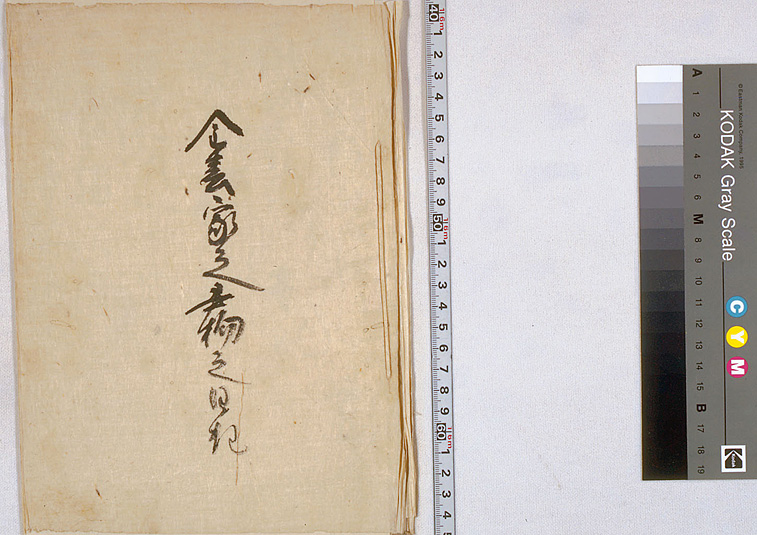 金春家之書物之
40 1 2 3 4 5 6 7 8 9 50 1 2 3 4 5 6 7 8 9 60 1 2 3 4
KODAK Gray Scale
C Y M
A 1 2 3 4 5 6 M 8 9 10 11 12 13 14 15 B 17 18 19
Kodak